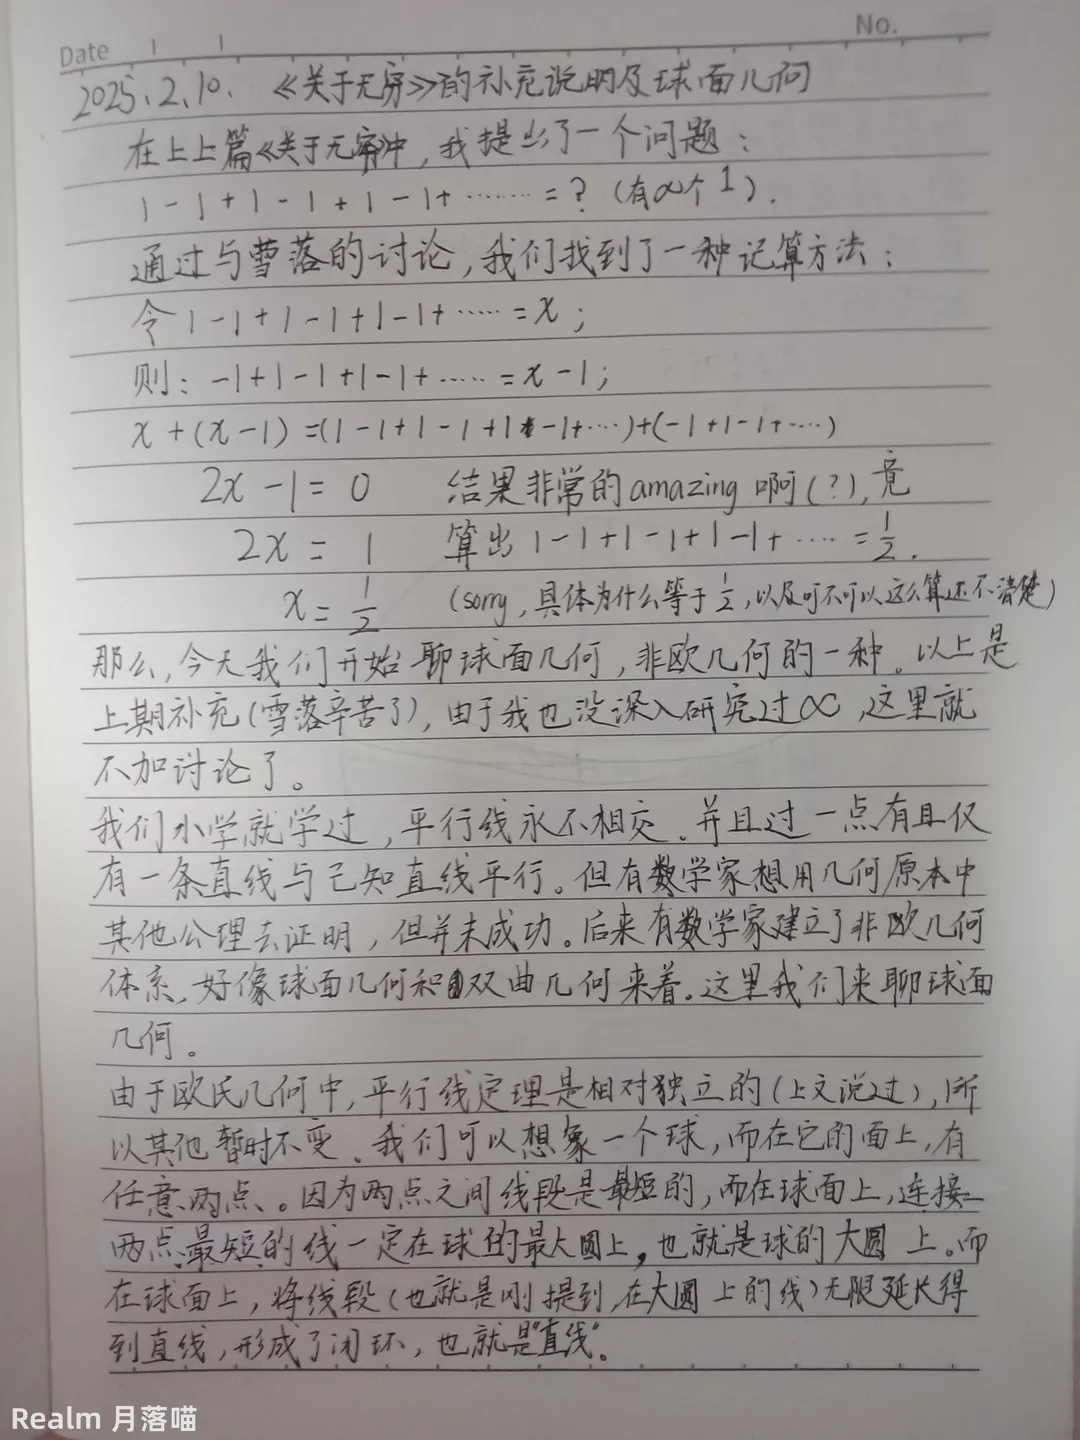 Date
No.
2025.2.10. 《关于无穷》的补充说明及球面几何
在上上篇《关于无穷》中,我提出了一个问题:
1-1+1-1+1-1+……=?(有∞个1).
通过与雪落的讨论,我们找到了一种记算方法:
令1-1+1-1+1-1+……=x;
则:-1+1-1+1-1+……=x-1;
x+(x-1)=(1-1+1-1+1-1+……)+(-1+1-1+……)
2x-1=0 结果非常的amazing啊(?),竟
2x=1 算出1-1+1-1+1-1+……=1/2.
x=1/2 (sorry,具体为什么等于1/2,以及可不可以这么算还不清楚)
那么,今天我们开始聊球面几何,非欧几何的一种。以上是
上期补充(雪落辛苦了),由于我也没深入研究过∞,这里就
不加讨论了。
我们小学就学过,平行线永不相交。并且过一点有且仅
有一条直线与已知直线平行。但有数学家想用几何原本中
其他公理去证明,但并未成功。后来有数学家建立了非欧几何
体系,好像球面几何和双曲几何来着。这里我们来聊球面
几何。
由于欧氏几何中,平行线定理是相对独立的(上文说过),所
以其他暂时不变。我们可以想象一个球,而在它的面上,有
任意两点。因为两点之间线段是最短的,而在球面上,连接
两点最短的线一定在球的最大圆上,也就是球的大圆上。而
在球面上,将线段(也就是刚提到,在大圆上的线)无限延长得
到直线,形成了闭环,也就是"直线"。
Realm 月落喵